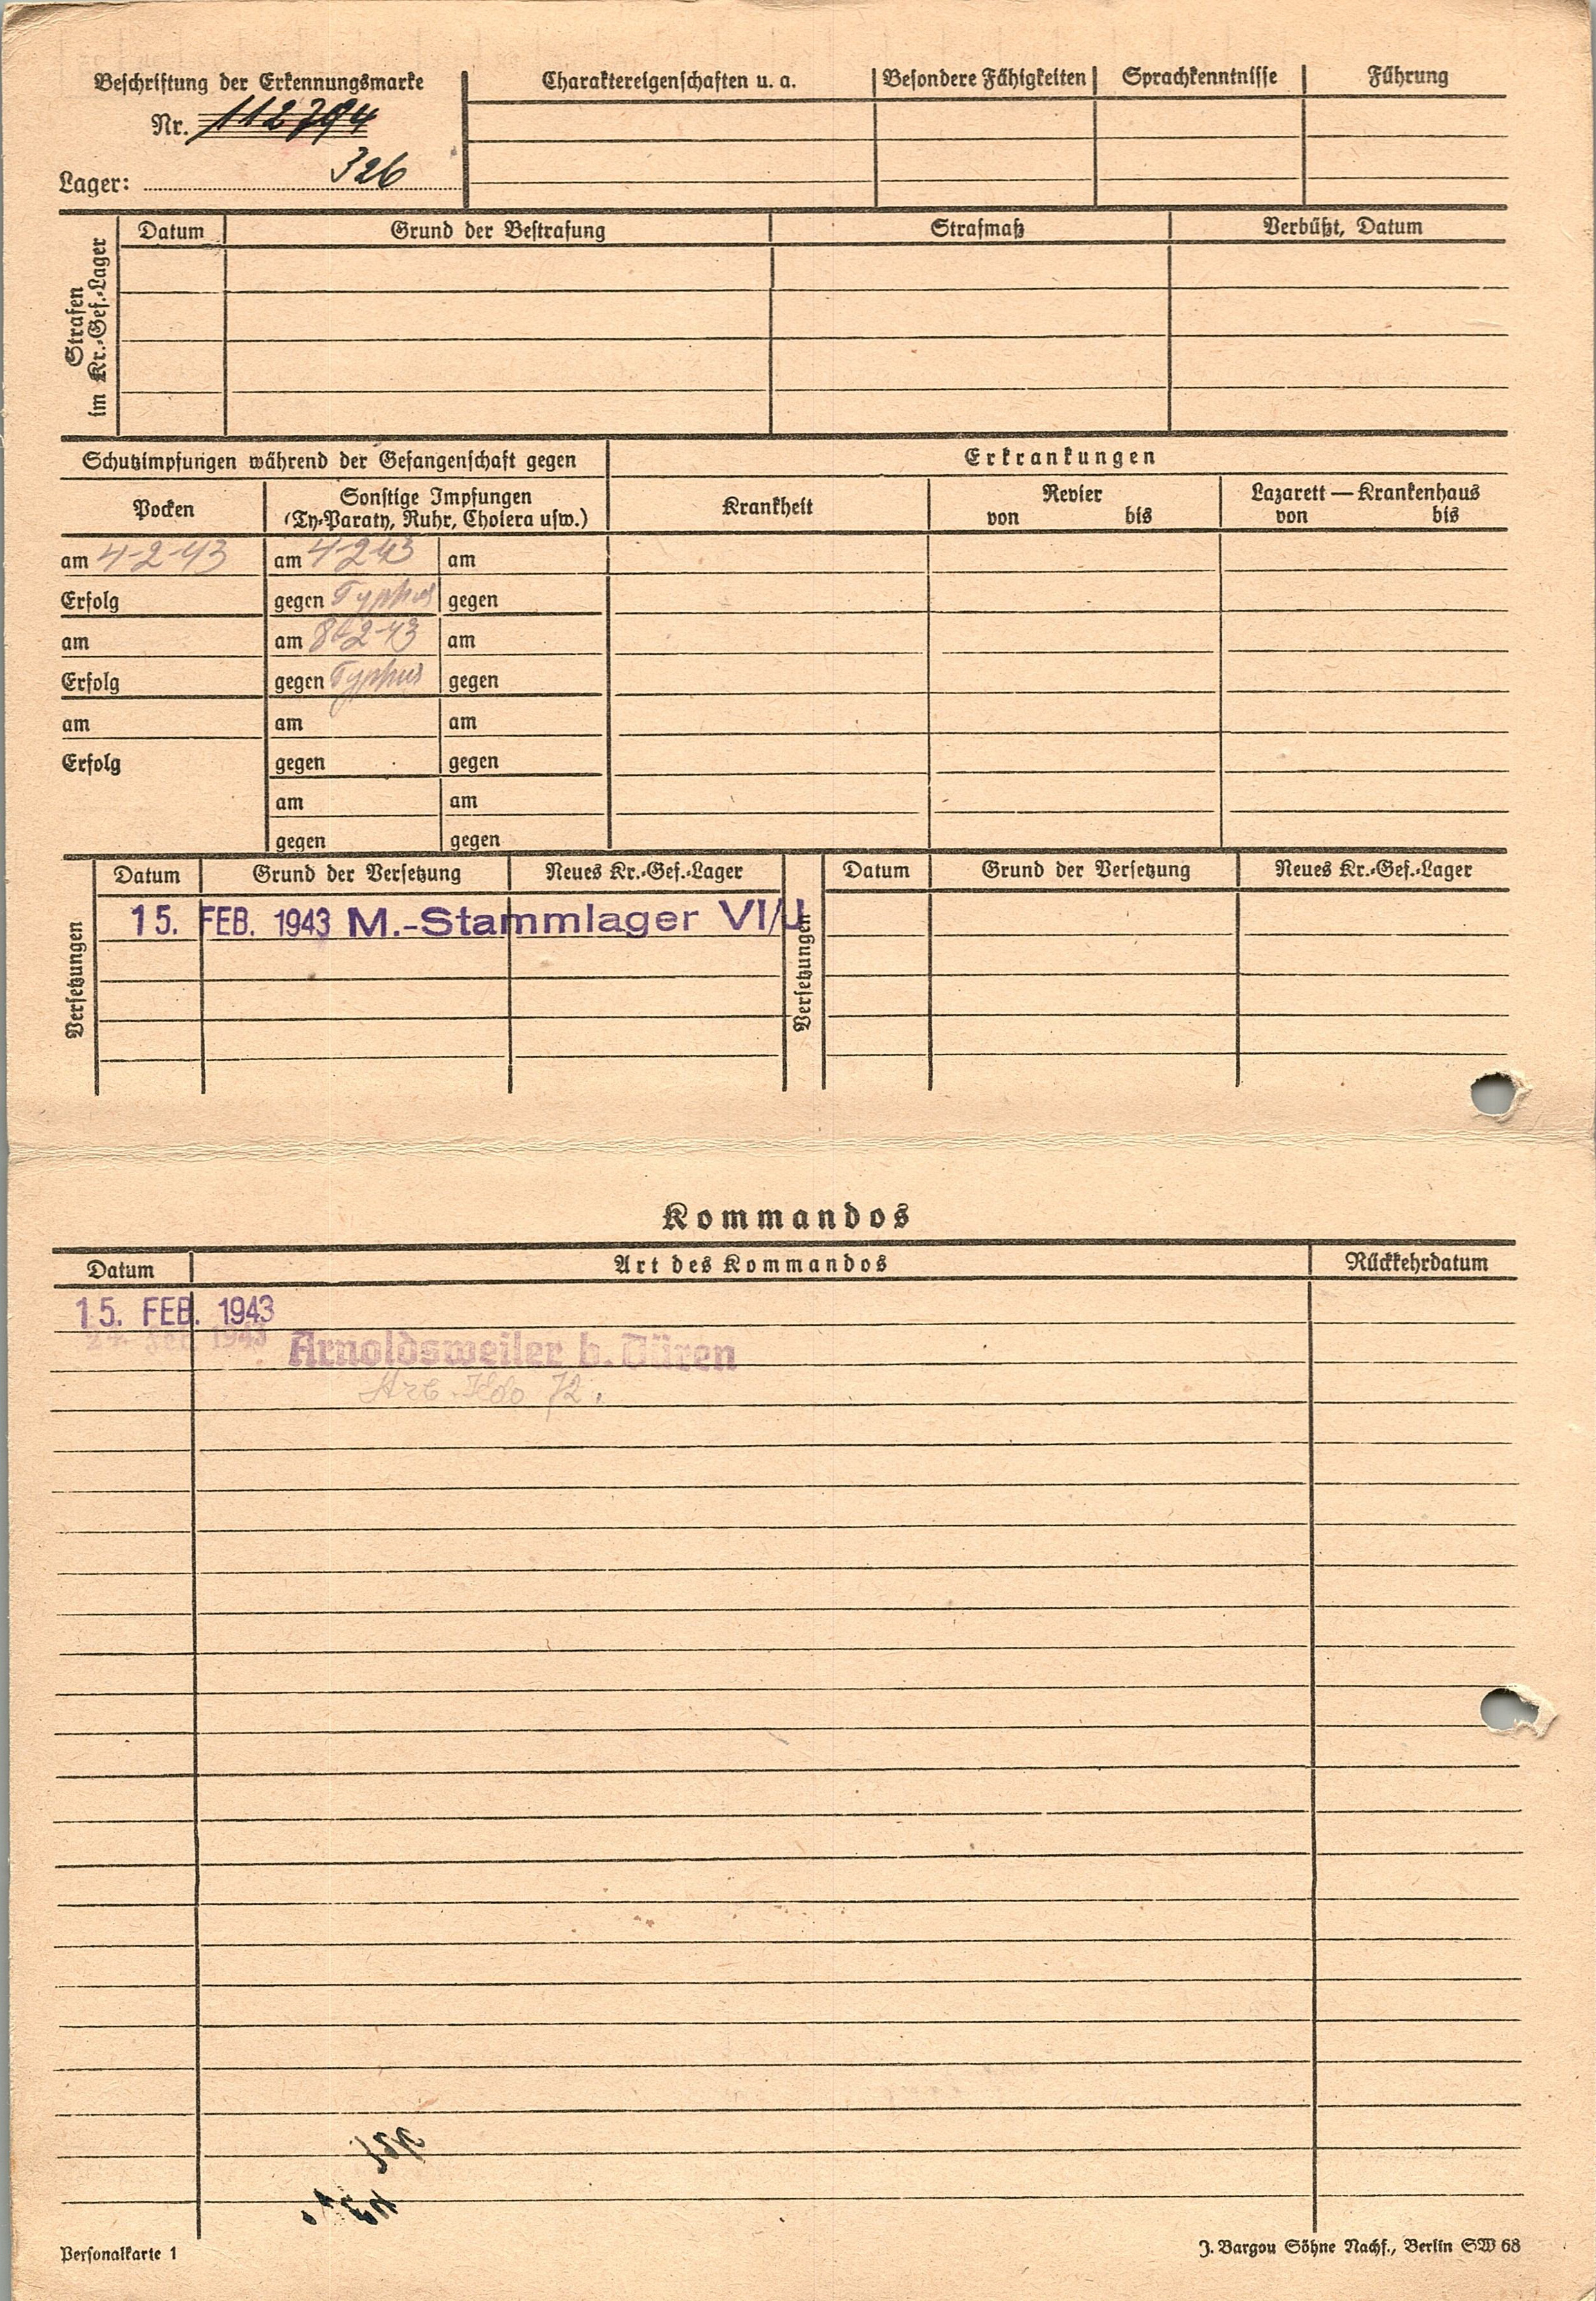 Beschriftung der Erkennungsmarke
Nr. 112794
Lager: 326
Charaktereigenschaften u. a. Besondere Fähigkeiten Sprachkenntnisse Führung
Strafen im Kr.-Gef.-Lager
Datum Grund der Bestrafung Strafmaß Verbüßt, Datum
Schutzimpfungen während der Gefangenschaft gegen
Erkrankungen
Pocken
Sonstige Impfungen
(Ty-Paraty, Ruhr, Cholera usw.)
Krankheit
Revier
von bis
Lazarett — Krankenhaus
von bis
am 4-2-43 am 4-2-43 am
Erfolg gegen Typhus gegen
am am 8-2-43 am
Erfolg gegen Typhus gegen
am am am
Erfolg gegen gegen
am am
gegen gegen
Versetzungen
Datum Grund der Versetzung Neues Kr.-Gef.-Lager
15. FEB. 1943 M.-Stammlager VI/J
Versetzungen
Datum Grund der Versetzung Neues Kr.-Gef.-Lager
Kommandos
Datum Art des Kommandos Rückkehrdatum
15. FEB. 1943
1943 Arnoldsweiler b. Düren
Arb. Kdo 72.
Personalkarte 1
J. Bargou Söhne Nachf., Berlin SW 68